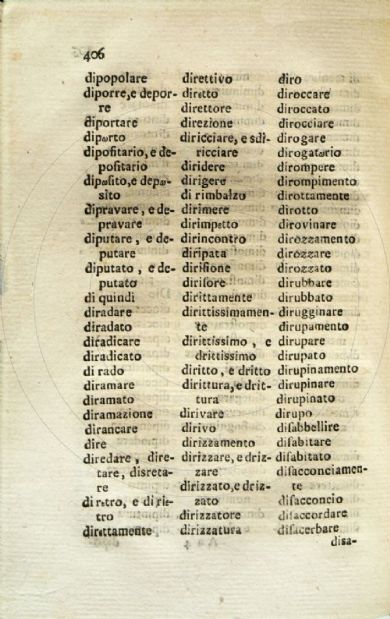 406
dipopolare
diporre, e depor-
re
diportare
dipωrto
dipoſitario, e de-
poſitario
dipωſito, e depω-
sito
dipravare, e de-
pravare
diputare, e de-
putare
diputato, e de-
putato
di quindi
diradare
diradato
diradicare
diradicato
di rado
diramare
diramato
diramazione
dirancare
dire
diredare, dire-
tare, disreta-
re
di rεtro, e di riε-
tro
direttamente
direttivo
dirεtto
direttore
direzione
diricciare, e sdi-
ricciare
diridere
dirigere
di rimbalzo
dirimere
dirimpεtto
dirincontro
diripata
diriſione
diriſore
dirittamente
dirittissimamen-
te
dirittissimo, e
drittissimo
diritto, e dritto
dirittura, e drit-
tura
dirivare
dirivo
dirizzamento
dirizzare, e driz-
zare
dirizzato, e driz-
zato
dirizzatore
dirizzatura
diro
diroccare
diroccato
dirocciare
dirogare
dirogatωrio
dirompere
dirompimento
dirottamente
dirotto
dirovinare
dirozzamento
dirozzare
dirozzato
dirubbare
dirubbato
dirugginare
dirupamento
dirupare
dirupato
dirupinamento
dirupinare
dirupinato
dirupo
diſabbellire
diſabitare
diſabitato
diſacconciamen-
te
diſacconcio
diſaccordare
diſacerbare
disa-